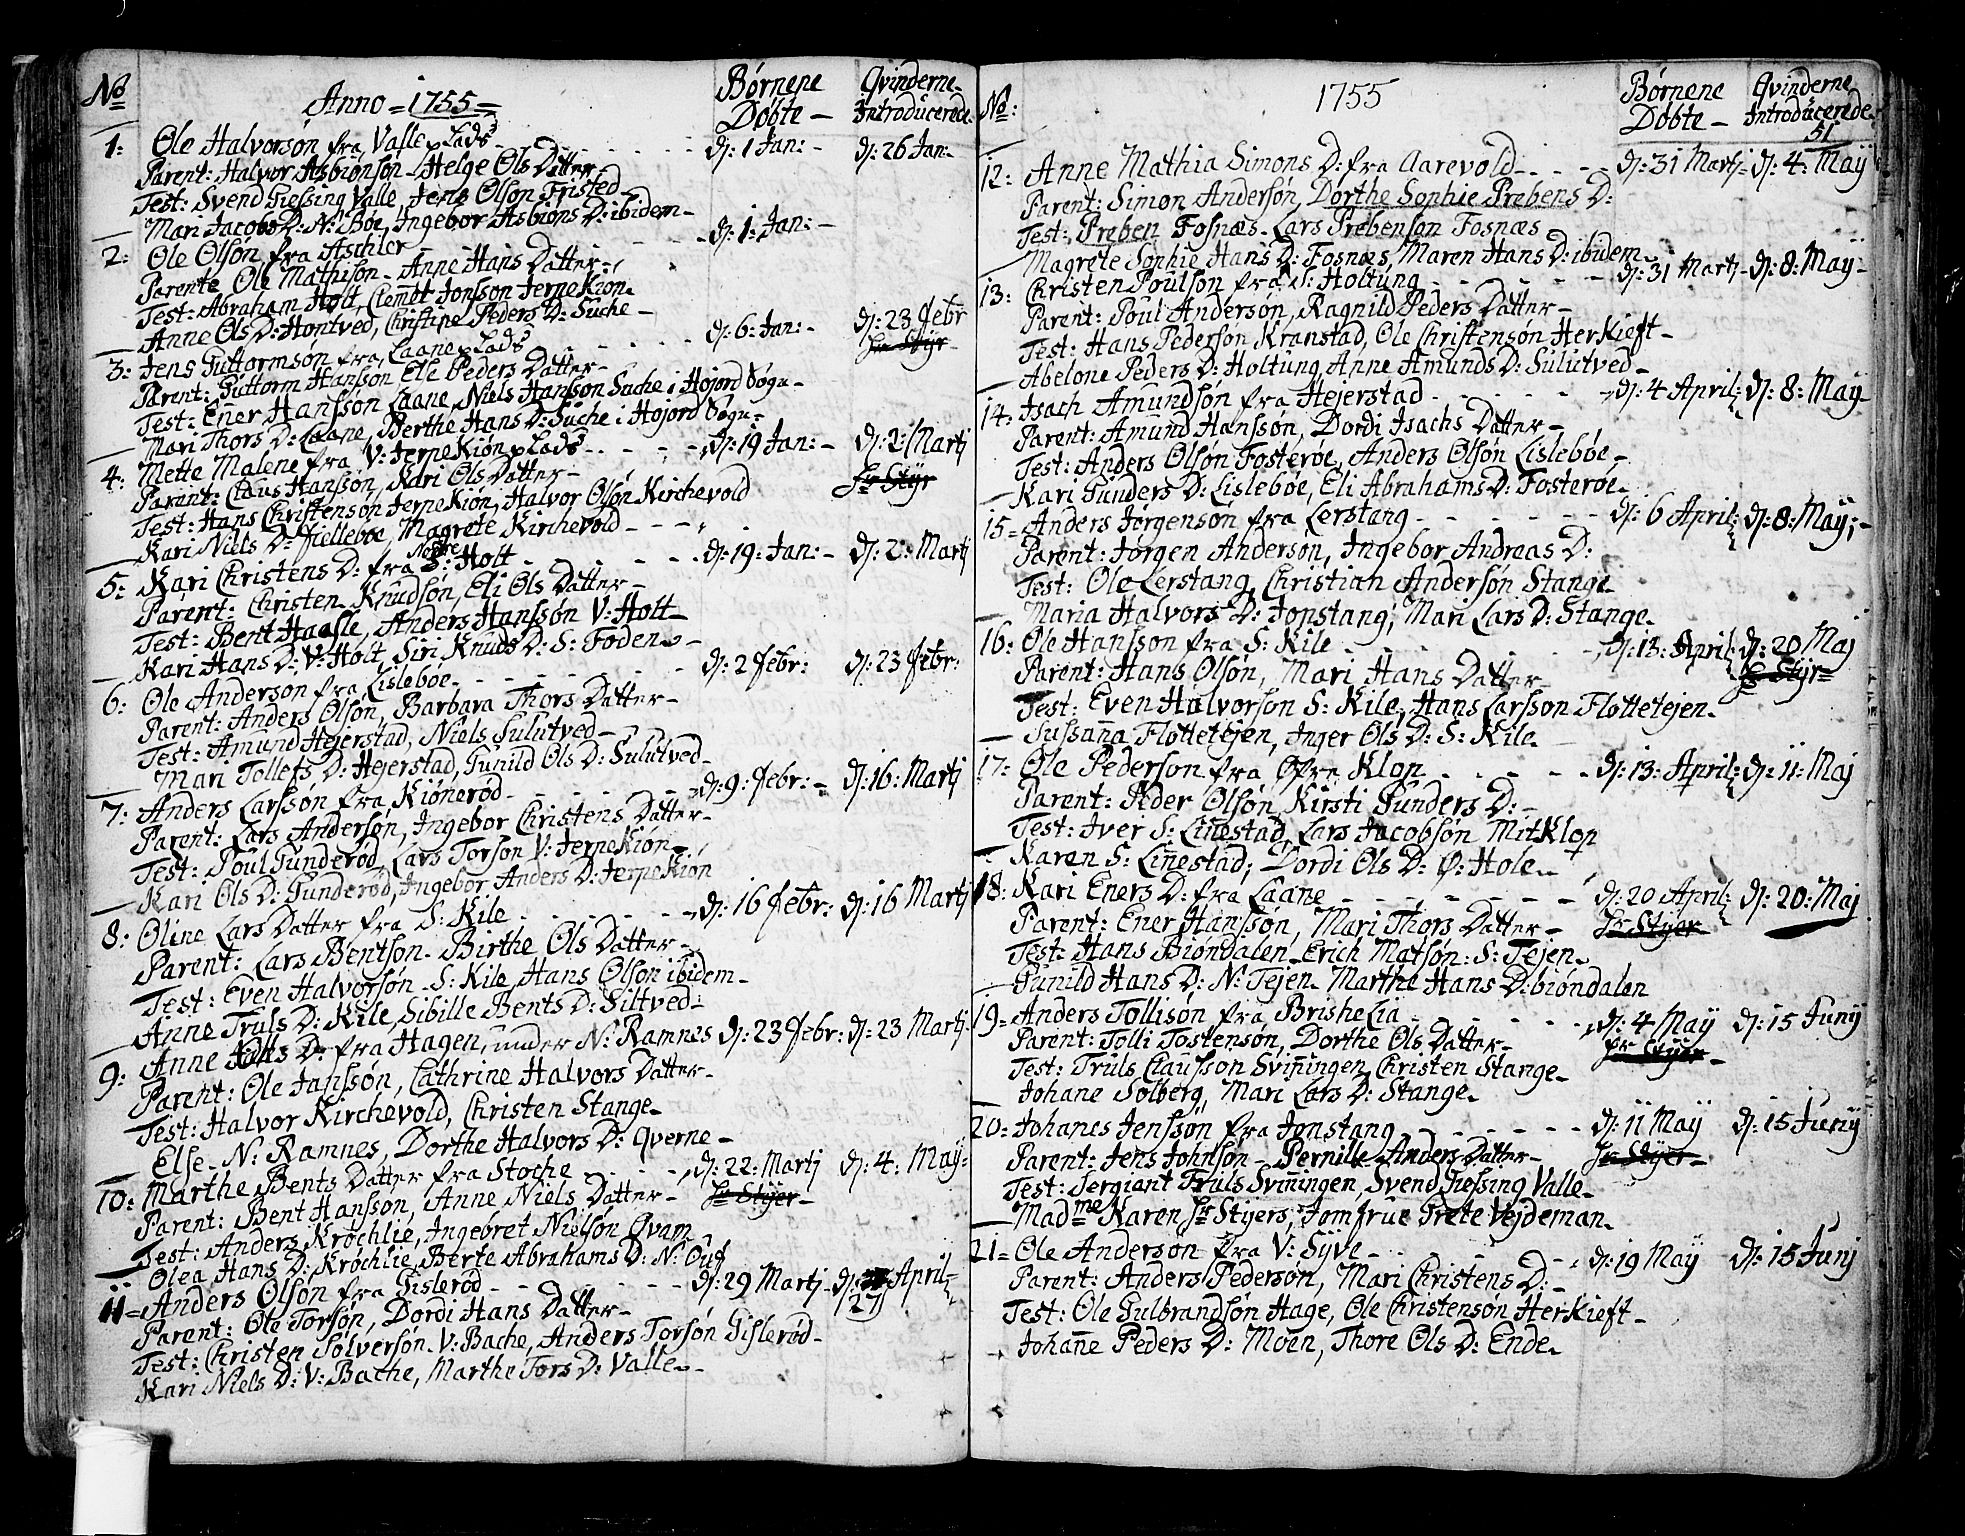 No Anno = 1755 = Børnene Døbte — Qvinderne Introducerede
1: Ole Halvorsøn fra Valle Lads d: 1 Jan: d: 26 Jan:
Parent: Halvor Asbiønsøn - Helge Ols Datter
Test: Svend Giessing Valle, Jens Olsøn Fristed
Mari Jacobs D: N: Bøe, Ingebor Asbiøns D: ibidem
2: Ole Olsøn fra Aschler d: 1: Jan:
Parente Ole Mathisøn - Anne Hans Datter
Test: Abraham Holt, Clemet Jonsson JerneKiøn
Anne Ols D: Hontved, Christine Peders D: Suche
3: Jens Guttormsøn fra Laane Lads d: 6: Jan: d: 23 Febr
Hr Styr
Parent: Guttorm Hanssøn Ele Peders Datter
Test: Ener Hanssøn Laane, Niels Hansson Suche i Højord Sogn
Mari Thors D: Laane, Berthe Hans D: Suche i Højord Sogn
4: Mette Malene fra V: JerneKiøn Lads d: 19 Jan: d: 2: Martj
Hr Styr
Parent: Claus Hanssøn, Kari Ols Datter
Test: Hans Christensøn JerneKiøn, Halvor Olsøn Kirchevold
Kari Niels D: Fielleboe, Magrete Kirchevold
5: Kari Christens D: fra Nostre S: Holt d: 19: Jan: d: 2: Martj
Parent: Christen Knudsøn, Eli Ols Datter
Test: Bent Haasle, Anders Hanssøn V: Holt
Kari Hans D: V: Holt Siri Knuds D: S: Foden
6: Ole Andersøn fra Lisleboe d: 2 Febr: d: 23 Febr:
Parent: Anders Olsøn, Barbara Thors Datter
Test: Amund Hejerstad, Niels Sulutved
Mari Tollefs D: Hejerstad, Gunild Ols D: Sulutved
7: Anders Larssøn fra Kiønerød d: 9: Febr: d: 16: Martj
Parent: Lars Andersøn, Ingebor Christens Datter
Test: Poul Gunderød, Lars Torsøn V: JerneKiøn
Kari Ols D: Gunderød, Ingebor Anders D: JerneKiøn
8: Oline Lars Datter fra S: Kile d: 16 Febr: d: 16 Martj
Parent: Lars Bentsøn - Birthe Ols Datter
Test: Even Halvorsøn - S: Kile, Hans Olsøn ibidem
Anne Truls D: Kile, Sibille Bents D: Siltved:
9: Anne D: fra Hagen, under N: Ramnes d: 23 Febr: d: 23 Martj
Parent: Ole Janssøn, Cathrine Halvors Datter
Test: Halvor Kirchevold, Christen Stange
Else N: Ramnes, Dorthe Halvors D: Qverne
10: Marthe Bents Datter fra Stoche d: 22: Martj d: 4: Maÿ
Hr Stÿer
Parent: Bent Hansson, Anne Niels Datter
Test: Anders Krøchlie, Ingebret Nielsøn Qvam
Olea Hans D: Krøchlie, Berte Abrahams D: N: Ouf
11 = Anders Olsøn fra Gislerød d: 29 Martj d: April
27
Parent: Ole Torsøn, Dordi Hans Datter
Test: Christen Sølversøn V: Bache, Anders Torsøn Gislerød
Kari Niels D: V: Bache, Marthe Tors D: Valle
No: 1755 Børnene Døbte — Qvinderne Introducerede
51
12: Anne Mathia Simons D: fra Aarevold d: 31 Martj d: 4: Maÿ
Parent: Simon Andersøn, Dorthe Sophie Prebens D:
Test: Preben Fosnæs - Lars Prebensøn Fosnæs
Magrete Sophie Hans D: Fosnæs, Maren Hans D: ibidem
13: Christen Poulsøn fra S: Holtung d: 31 Martj d: 8: Maÿ
Parent: Poul Andersøn, Ragnild Peders Datter
Test: Hans Pedersøn Kranstad, Ole Christensøn HerKieft
Abelone Peders D: Holtung, Anne Amunds D: Sulutved
14: Isach Amundsøn fra Hejerstad d: 4 April: d: 8: May
Parent: Amund Hanssøn, Dordi Isachs Datter
Test: Anders Olsøn Fosterøe, Anders Olsøn Lislebøe
Kari Gunders D: Lislebøe, Eli Abrahams D: Fosterøe
15 = Anders Jørgensøn fra Lerstang d: 6 April: d: 8: Maÿ:
Parent: Jørgen Andersøn, Ingebor Andreas D:
Test: Ole Lerstang, Christian Andersøn Stange
Maria Halvors D: Jonstang; Mari Lars D: Stange
16: Ole Hansson fra S: Kile d: 13: April: d: 20 Maj
Hr Styr
Parent: Hans Olsøn, Mari Hans Datter
Test: Even Halvorsøn S: Kile, Hans Larssøn Fløttetejen
Sussaña Fløttetejen, Inger Ols D: S: Kile
17: Ole Pedersøn fra Øfre Klop d: 13: April: d: 11: Maj
Parent: Peder Olsøn Kirsti Gunders D:
Test: Iver S: Liñestad, Lars Jacobsøn MitKlop
Karen S: Liñestad; Dordi Ols D: Ø: Hole
18: Kari Eners D: fra Laane d: 20 April: d: 20: Maj
Hr Stÿer
Parent: Ener Hanssøn, Mari Thors Datter
Test: Hans Biøndalen Erich Matsøn: S: Tejen
Gunild Hans D: N: Tejen Marthe Hans D: biøndalen
19 = Anders Tollisøn fra Brishe Lia d: 4 May d: 15 Junÿ
Hr Stÿer
Parent: Tolli Tostensøn, Dorthe Ols Datter
Test: Truls Claussøn Sviñingen, Christen Stange
Johane Solberg, Mari Lars D: Stange
20 = Johanes Jenssøn fra Jonstang d: 11 May d: 15 Junÿ
Hr Stÿer
Parent: Jens Johnsøn - Pernille Anders Datter
Test: Sergiant Truls Sviñingen, Svend Giessing Valle
Madme Karen Hr Stÿers, Jomfrue Grete Vejdeman
21 = Ole Andersøn fra V: Syve d: 19 May d: 15 Junj
Parent: Anders Pedersøn, Mari Christens D:
Test: Ole Gulbrandsøn Hage, Ole Christensøn HerKieft
Johañe Peders D: Moen, Thore Ols D: Ende